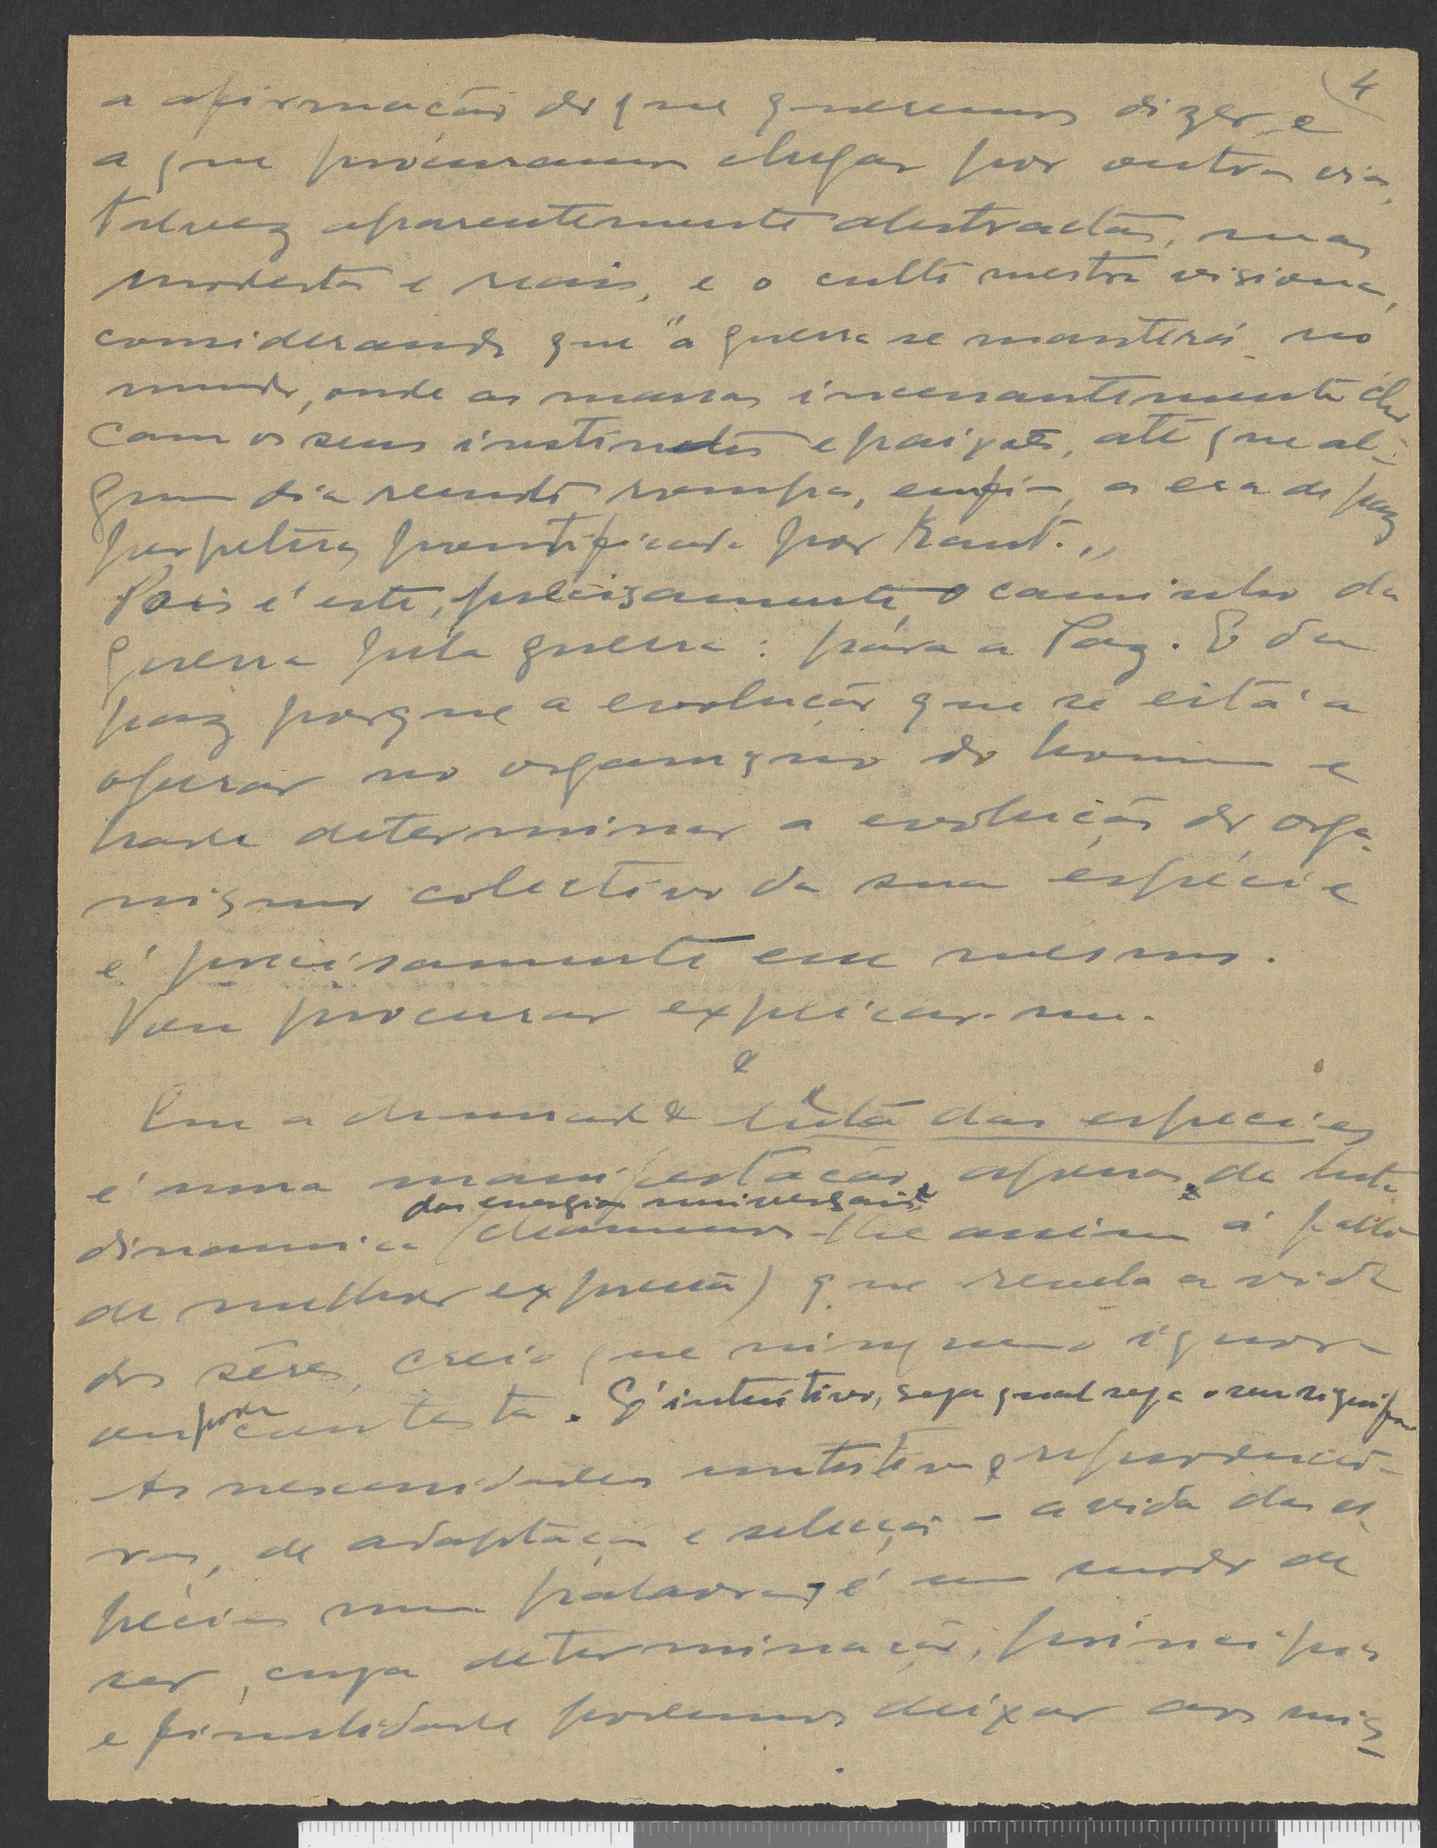 4
a afirmação do que queremos dizer e
a que procuramos chegar por outras vias,
talvez aparentemente abstractas, mas
modestas e reais, e o culto mestre visiona,
considerando que "a guerra se manterá no
mundo, onde as massas incessantemente cho
cam os seus instinctos e paixões, até que al-
gum dia remoto rompa, enfim, a era de paz
perpétua, prontificada por Kant."
Pois é este, precisamente, o caminho da
guerra pela guerra: pára a Paz. E da
paz porque a evolução que se está a
operar no organismo do homem e
hade determinar a evolução do orga-
nismo colectivo da sua espécie
é precisamente esse mesmo.
Vou procurar explicar-me.
Que a chamada luta das espécies
é uma manifestação, apenas, da luta
das energias universais
dinamica (chamemos-lhe assim á falta
de melhor expressão) que revela a vida
dos sêres, creio que ninguem ignora
ou pode contesta. É intuitivo, seja qual seja o seu signifi
As necessidades nutritivas e reproducto-
ras, de adaptação e seleção - a vida das es-
pécies numa palavra, é um modo de
ser, cuja determinação, principios
e finalidade podemos deixar aos mis-